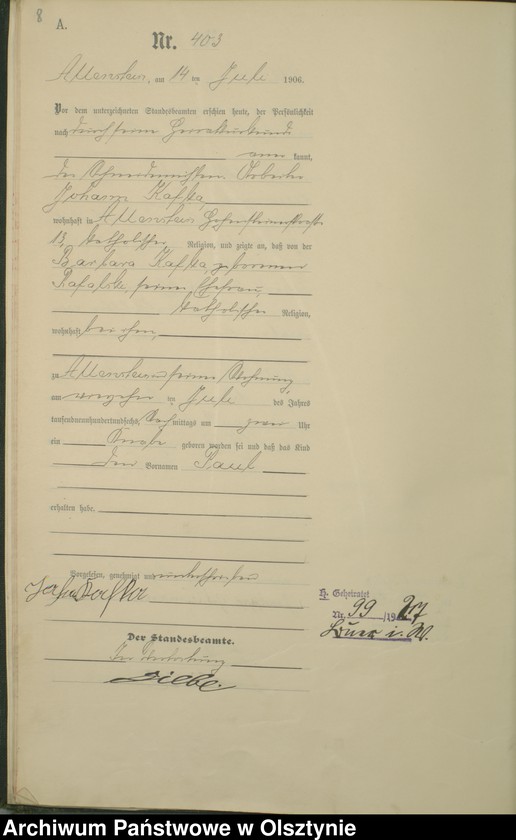 8
A.
Nr. 403
Allenstein, am 14 ten Juli 1906.
Vor dem unterzeichneten Standesbeamten erschien heute, der Persönlichkeit
nach durch seine Heiratsurkunde
kannt,
der Schneidemühlen Arbeiter
Johann Kafka
wohnhaft in Allenstein Hohensteinerstraße
13, katholischer Religion, und zeigte an, daß von der
Barbara Kafka, geborenen
Rafalski seiner Ehefrau,
katholischer Religion,
wohnhaft bei ihm,
zu Allenstein in seiner Wohnung,
am vierzehnten Juli des Jahres
tausendneunhundertundsechs, Nachmittags um zwei Uhr
ein Knabe geboren worden sei und daß das Kind
den Vornamen Paul
erhalten habe.
Vorgelesen, genehmigt und unterschrieben
Joh. Kafka
H. Geheiratet
Nr. 99 /1927
Buer i. W.
Der Standesbeamte.
In Vertretung